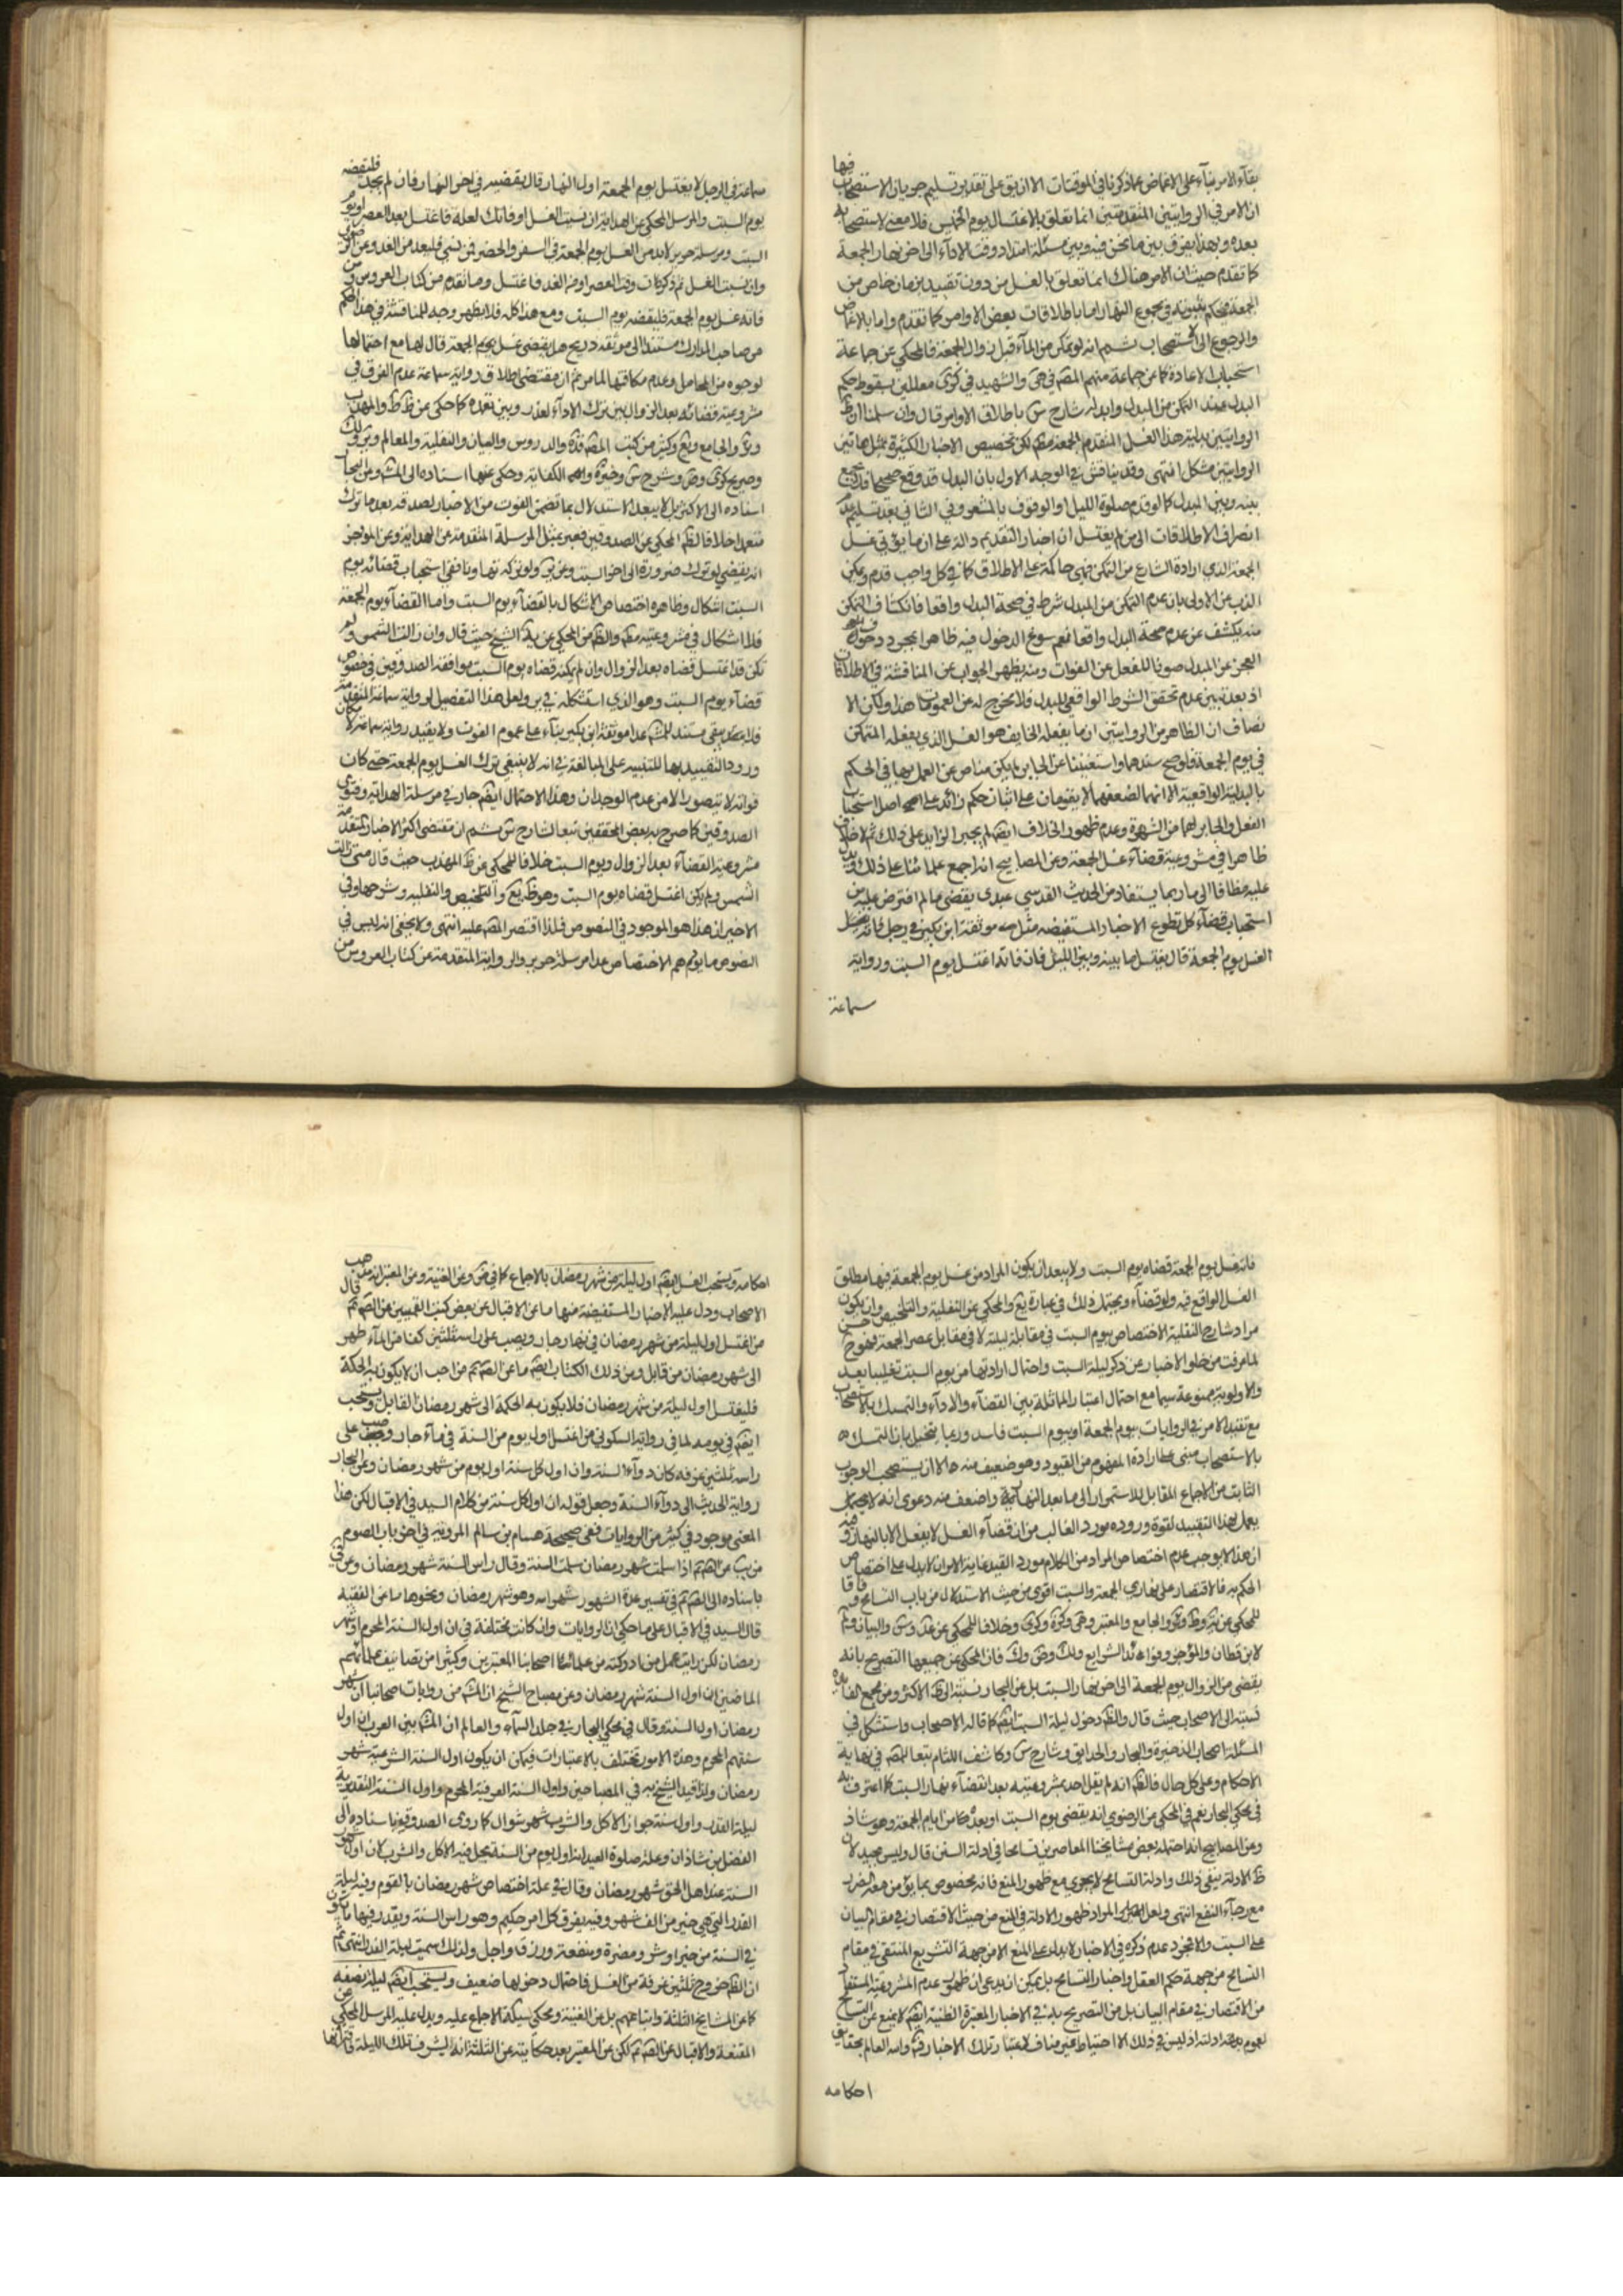 بقاء الامر بناء على الاغماض عما ذكرنا في الموقتات الا ان يق على تقدير تسليم جريان الاستصحاب فيها
ان الامر في الروايتين المتقدمتين انما تعلق بالاغتسال يوم الخميس فلا معنى لاستصحابه
بعده وبهذا يفرق بين ما نحن فيه وبين مسئلة امتداد وقت الاداء الى اخر نهار الجمعة
كما تقدم حيث ان الامر هناك انما تعلق بالغسل من دون تقييد بزمان خاص من
الجمعة فيحكم بثبوته في مجموع النهار اما باطلاقات بعض الاوامر كما تقدم واما بالاغماض
والرجوع الى الاستصحاب ثم انه لو تمكن من الماء قبل زوال الجمعة فالمحكي عن جماعة
استحباب الاعادة كما عن جماعة منهم المص في هى والشهيد في كرى معللين بسقوط حكم
البدل عند التمكن من المبدل وايده شارح س باطلاق الاوامر قال وان سلمنا ان ظ
الروايتين بدلية هذا الغسل المتقدم للجمعة مطم لكن تخصيص الاخبار الكثيرة بمثل هاتين
الروايتين مشكل انتهى وقد يناقش في الوجه الاول بان البدل قد وقع صحيحا فلا يجمع
بينه وبين المبدل كما لو قدم صلوة الليل او الوقوف بالمشعر وفي الثاني بعد تسليم عدم
انصراف الاطلاقات الى من لم يغتسل ان اخبار التقديم دالة على ان ما يؤتى غسل
الجمعة الذي اراده الشارع من المتمكن فهي حاكمة على الاطلاق كما في كل واجب قدم ويمكن
الذب عن الاولى بان عدم التمكن من المبدل شرط في صحة البدل واقعا فانكشاف التمكن
منه يكشف عن عدم صحة البدل واقعا نعم سوغ الدخول فيه ظاهرا بمجرد دخول
العجز عن المبدل صونا للفعل عن الفوات ومنه يظهر الجواب عن المناقشة في الاطلاقات
اذ بعد تبين عدم تحقق الشرط الواقعي للبدل فلا مخرج له عن العمومات هذا ولكن الا
نصاف ان الظاهر من الروايتين ان ما يفعله الخايف هو الغسل الذي يفعله المتمكن
في يوم الجمعة فلو صح سندهما واستغنينا عن الجابر لم يكن مناص عن العمل بهما في الحكم
بالبدلية الواقعية الا انهما لضعفهما لا يقومان على اثبات حكم زائد على اصل استحباب
الفعل والجابر لهما من الشهرة وعدم ظهور الخلاف ايضا لم يجبر الزايد على ذلك ثم لا خلاف
ظاهرا في مشروعية قضاء غسل الجمعة وعن المصابيح انه اجمع علمائنا على ذلك ويدل
عليه مظافا الى ما ربما يستفاد من الحديث القدسي عبدي يقضي ما لم افترض عليه من
استحباب قضاء كل تطوع الاخبار المستفيضة مثل موثقة ابن بكير في رجل فاته
الغسل يوم الجمعة قال يغتسل ما بينه وبين الليل فان فاته اغتسل يوم السبت ورواية
سماعة
سماعة في الرجل لا يغتسل يوم الجمعة اول النهار قال يقضيه في اخر النهار فان لم يجد فليقضه
يوم السبت والمرسل المحكي عن الهداية ان نسيت الغسل او فاتك لعلة فاغتسل بعد العصر او يوم
السبت ومرسلة حريز لا بد من الغسل يوم الجمعة في السفر والحضر فمن نسي فليعد من الغد وعن
وان نسيت الغسل ثم ذكرت وقت العصر او من الغد فاغتسل وما تقدم من كتاب العروس من
فاته غسل يوم الجمعة فليقضه يوم السبت ومع هذا كله فلا يظهر وجه للمناقشة في هذا الحكم
من صاحب المدارك مستندا الى موثقة ذريح هل يقضي غسل يوم الجمعة قال لها مع احتمالها
لوجوه من المحامل وعدم مكافئتها لما مر ثم ان مقتضى اطلاق رواية سماعة عدم الفرق في
مشروعية قضائه بعد الزوال بين ترك الاداء لعذر وبين تعمده كما حكى عن ظ ط والمهذب
وئر والجامع ويع وكثير من كتب المص قده والدروس والبيان والنفلية والمعالم
وصريح كرى وض وشروح س وخيرة واهـ الكفاية وحكى عنها اسناده الى المشه وعن البحار
اسناده الى الاكثر بل لا يبعد الاستدلال بما تضمن الفوت من الاخبار لصدقه بعد ما ترك
متعمدا خلافا لظ المحكي عن الصدوقين فعبر بمثل المرسلة المتقدمة عن الهداية وعن الموجز
انه يقضي لو ترك ضرورة الى اخر السبت وعن ير ولو تركه تهاونا ففي استحباب قضائه يوم
السبت اشكال وظاهره اختصاص الاشكال بالقضاء يوم السبت واما القضاء يوم الجمعة
فلا اشكال في مشروعيته مطم والظ من المحكي عن ية الشيخ حيث قال وان زالت الشمس ولم
تكن قد اغتسل قضاه بعد الزوال وان لم يمكنه قضاه يوم السبت موافقة الصدوقين في خصوص
قضاء يوم السبت وهو الذي استشكله في ير ولعل هذا التفصيل لرواية سماعة المتقدمة
فلا يبقى مستند للمشه عدا موثقة ابن بكير بناء على عموم الفوت ولا يقيد رواية سماعة لامكان
ورود التقييد بها للتنبيه على المبالغة في انه لا ينبغي ترك الغسل يوم الجمعة حتى كان
فواته لا يتصور الا من عدم الوجدان وهذا الاحتمال ايضا جار في مرسلة الهداية وفتوى
الصدوقين كما صرح به بعض المحققين تبعا لشارح س ثم ان مقتضى اكثر الاخبار المتقدمة
مشروعية القضاء بعد الزوال ويوم السبت خلافا للمحكي عن ظ المهذب حيث قال متى زالت
الشمس ولم يكن اغتسل قضاه يوم السبت وهو ظ يع والتلخيص والنفلية وشرحها وفي
الاخير ان هذا هو الموجود في النصوص فلذا اقتصر المص عليه انتهى ولا يخفى انه ليس في
النصوص ما يوهم الاختصاص عدا مرسلة حريز والرواية المتقدمة عن كتاب العروس من
فاته غسل يوم الجمعة قضاه يوم السبت ولا يبعد ان يكون المراد من غسل يوم الجمعة فيهما مطلق
الغسل الواقع فيه ولو قضاء ويحتمل ذلك في عبارة يع والمحكي عن النفلية والتلخيص وان يكون
مراد شارح النفلية الاختصاص بيوم السبت في مقابلة ليلة لا في مقابل عصر الجمعة
لما عرفت من خلو الاخبار عن ذكر ليلة السبت واحتمال ارادتها من يوم السبت تغليبا بعيد
والاولوية ممنوعة سيما مع احتمال اعتبار المماثلة بين القضاء والاداء والتمسك بالاستصحاب
مع تقييد الامر في الروايات بيوم الجمعة او بيوم السبت فاسد وربما يتخيل بان التمسك
بالاستصحاب مبني على ارادة المفهوم من القيود وهو ضعيف منه حالا ان يستصحب الوجوب
الثابت من الاجماع المقابل للاستمرار الى ما بعد النهار واضعف منه دعوى انه لا يحتمل
يعمل بهذا التقييد لقوة وروده مورد الغالب من ان قضاء الغسل لا يفعل الا بالنهار وفيه
ان هذا لا يوجب عدم اختصاص المراد من الكلام بمورد القيد غاية الامر ان لا يدل على اختصاص
الحكم به فالاقتصار على نهاري الجمعة والسبت اقوى من حيث الاستدلال من باب التسامح وفاقا
للمحكي عن ير وط وئر والجامع والمعتبر وهى وكرة وكرى وخلافا للمحكي عن عد وس والبيان
لابن قطان والموجز وفوائد الشرايع ولك وض وك فان المحكي عن جميعها التصريح بانه
يقضي من الزوال يوم الجمعة الى اخر نهار السبت بل عن البحار نسبته الى ظ الاكثر وعن مجمع الفائدة
نسبته الى الاصحاب حيث قال والظ دخول ليلة السبت ايضا كما قاله الاصحاب واستشكل في
المسئلة اصحاب الذخيرة والبحار والحدايق وشارح س وكاشف اللثام تبعا للمص في نهاية
الاحكام وعلى كل حال فالظ انه لم يقل احد بمشروعيته بعد انقضاء نهار السبت كما اعترف به
في محكي البحار نعم في المحكي عن الرضوي انه يقضي يوم السبت او بعده من ايام الجمعة وهو شاذ
وعن المصابيح انه احتمله بعض مشايخنا المعاصرين تسامحا في ادلة السنن قال وليس بجيد لان
ظ الادلة ينفي ذلك وادلة التسامح لا يجري مع ظهور المنع فانه مخصوص بما يؤمن معه الضرر
مع رجاء النفع انتهى ولعل المراد ظهور الادلة في المنع من حيث الاقتصار في مقام البيان
على السبت والا فمجرد عدم ذكره في الاخبار لا يدل على المنع الا من جهة التشريع المنتفي في مقام
التسامح من جهة حكم العقل واخبار التسامح بل يمكن ان يدعى ان ظهور عدم المشروعية المستفاد
من الاقتصار في مقام البيان بل من التصريح بذلك في الاخبار المعتبرة الظنية ايضا لا يمنع عن التسامح
لعموم ادلته اذ ليس في ذلك الا احتياط غير مناف لاعتبار تلك الاخبار والله العالم بحقايق
احكامه
احكامه ويستحب الغسل ايضا اول ليلة من شهر رمضان بالاجماع كما في ض وعن الغنية وعن المعتبر انه مذهب
الاصحاب ودل عليه الاخبار المستفيضة منها ما عن الاقبال عن بعض كتب القميين عن الص ع قال
من اغتسل اول ليلة من شهر رمضان في نهار جار ويصب على راسه ثلثين كفا من الماء طهر
الى شهر رمضان من قابل ومن ذلك الكتاب ايضا ما عن الص ع من احب ان لا يكون به الحكة
فليغتسل اول ليلة من شهر رمضان فلا يكون به الحكة الى شهر رمضان القابل ويستحب
ايضا في يومه لما في رواية السكوني من اغتسل اول يوم من السنة في ماء جار وصب على
راسه ثلثين غرفة كان دواء السنة وان اول كل سنة اول يوم من شهر رمضان وعن البحار
رواية الحديث الى دواء السنة وجعل قوله ان اول كل سنة من كلام السيد في الاقبال لكن هذا
المعنى موجود في كثير من الروايات ففي صحيحة هشام بن سالم المروية في اخر باب الصوم
من يب عن الص ع اذا سلم شهر رمضان سلمت السنة وقال راس السنة شهر رمضان وعن في
باسناده الى الص ع في تفسير عدة الشهور شهر الله وهو شهر رمضان ونحوها ما عن الفقيه
قال السيد في الاقبال على ما حكى ان الروايات وان كانت مختلفة في ان اول السنة المحرم او شهر
رمضان لكن رايت عمل من ادركته من علمائنا اصحابنا المعتبرين وكثيرا من تصانيف علمائهم
الماضين ان اول السنة شهر رمضان وعن مصباح الشيخ ان المشه من روايات اصحابنا ان شهر
رمضان اول السنة وقال في محكي البحار في جلد السماء والعالم ان المشه بين العرب ان اول
سنتهم المحرم وهذه الامور تختلف بالاعتبارات فيمكن ان يكون اول السنة الشرعية شهر
رمضان ولذا قيد الشيخ به في المصباحين واول السنة العرفية المحرم واول السنة التقديرية
ليلة القدر واول سنة جواز الاكل والشرب شهر شوال كما روى الصدوق ره باسناده الى
الفضل بن شاذان وعلة صلوة العيد انه اول يوم من السنة يحل فيه الاكل والشرب لان اول شهور
السنة عند اهل الحق شهر رمضان وقال في علة اختصاص شهر رمضان بالصوم وفيه ليلة
القدر التي هي خير من الف شهر وفيه يفرق كل امر حكيم وهو راس السنة ويقدر فيها ما يكون
في السنة من خير او شر ومضرة ومنفعة ورزق واجل ولذلك سميت ليلة القدر انتهى ثم
ان الظ خروج ثلثين غرفة من الغسل فاحتمال دخولها ضعيف ويستحب ايضا ليلة نصفه
كما عن المشايخ الثلثة واتباعهم بل عن الغنية ومحكي سيلة الاجماع عليه ويدل عليه المرسل المحكي عن
المقنعة والاقبال عن الص ع لكن عن المعتبر بعد حكايته عن الثلثة انه لشرف تلك الليلة